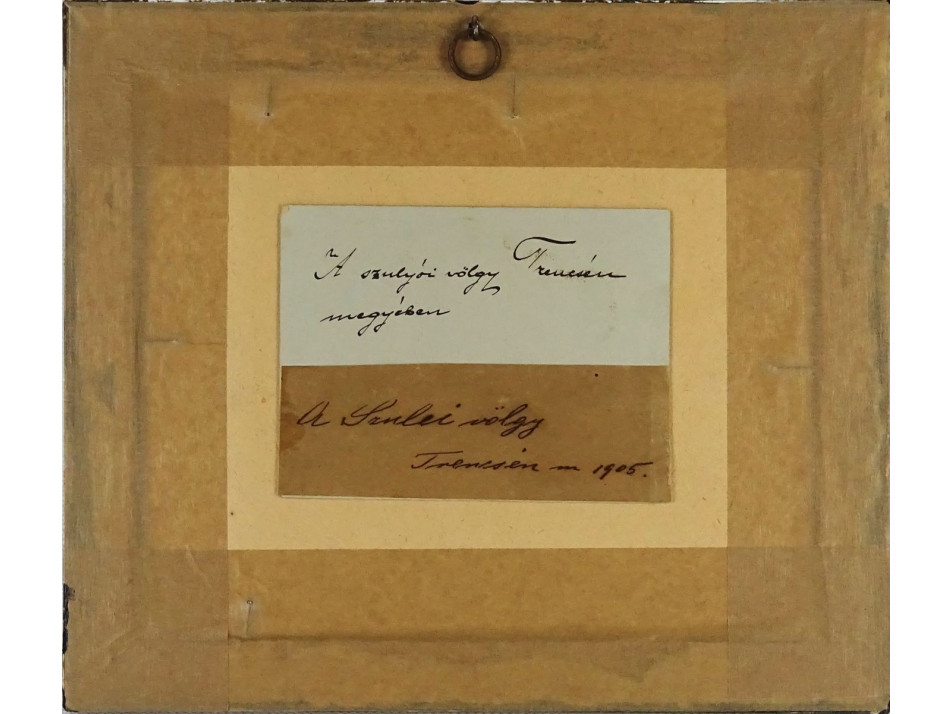 A szulyói völgy Trencsén
megyében
A Szulei völgy
Trencsén m 1905.